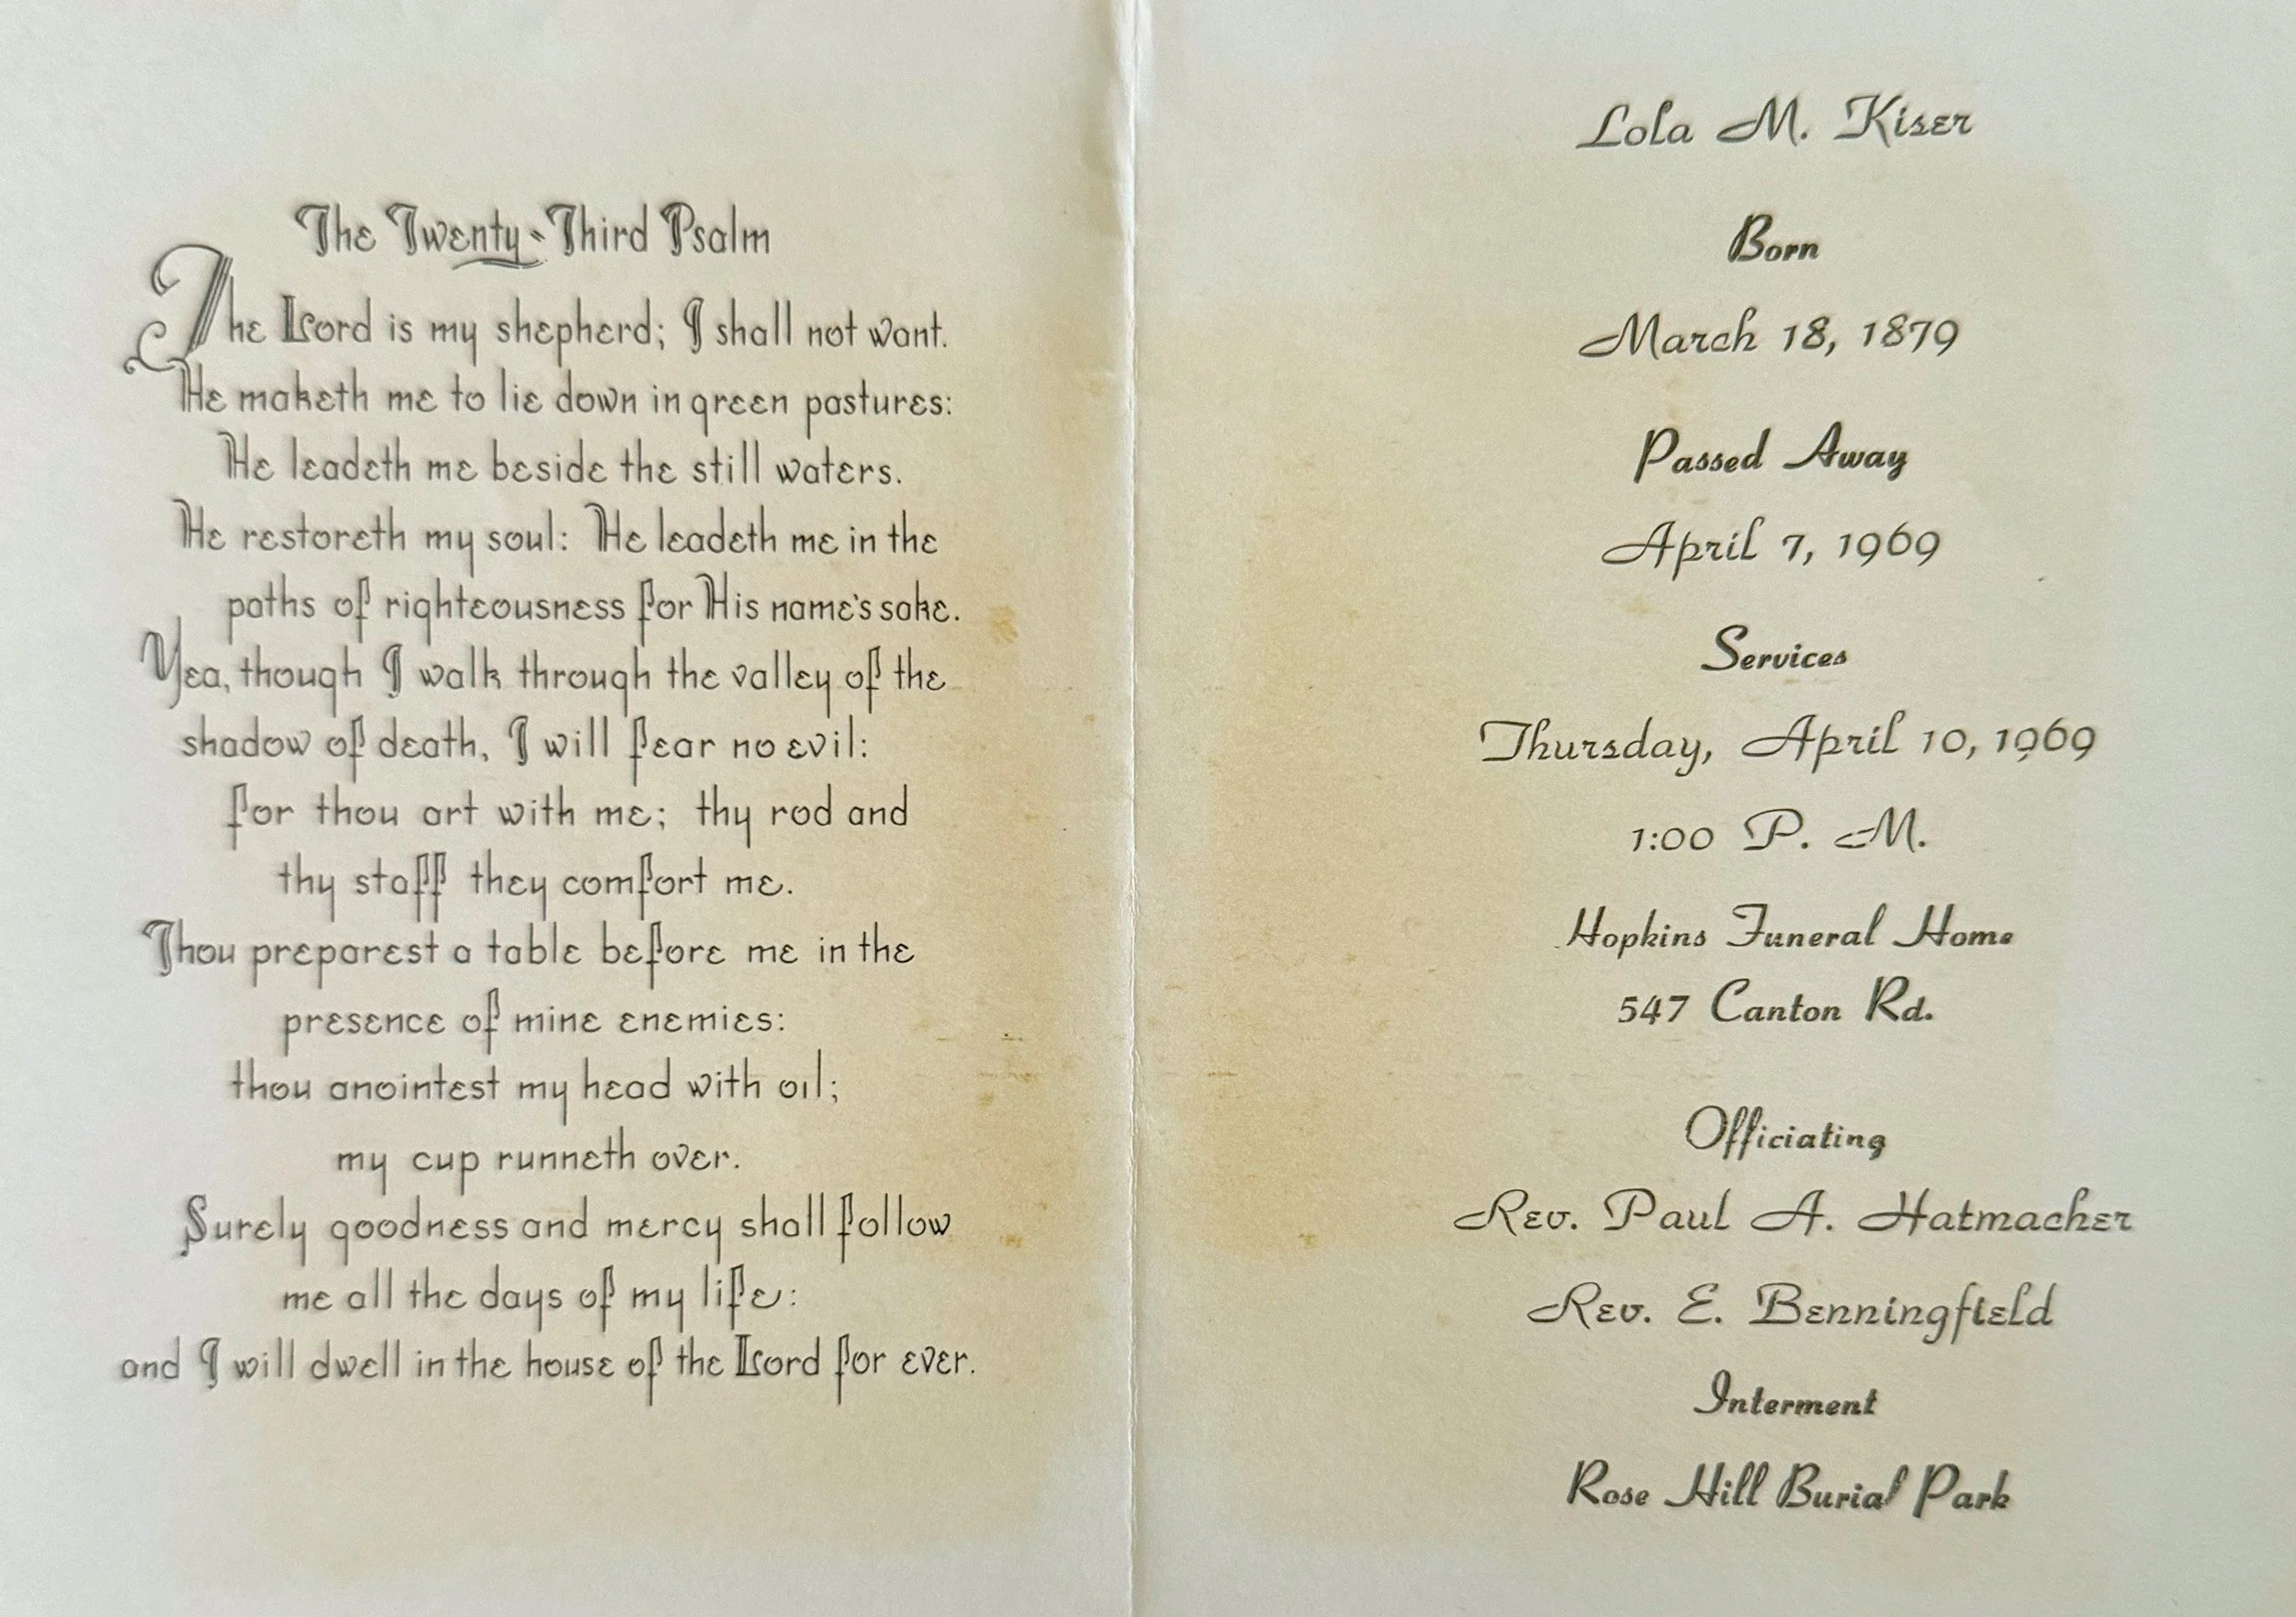 The Twenty-Third Psalm
The Lord is my shepherd; I shall not want.
He maketh me to lie down in green pastures:
He leadeth me beside the still waters.
He restoreth my soul: He leadeth me in the
paths of righteousness for His name's sake.
Yea, though I walk through the valley of the
shadow of death, I will fear no evil:
for thou art with me; thy rod and
thy staff they comfort me.
Thou preparest a table before me in the
presence of mine enemies:
thou anointest my head with oil;
my cup runneth over.
Surely goodness and mercy shall follow
me all the days of my life:
and I will dwell in the house of the Lord for ever.
Lola M. Kiser
Born
March 18, 1879
Passed Away
April 7, 1969
Services
Thursday, April 10, 1969
1:00 P. M.
Hopkins Funeral Home
547 Canton Rd.
Officiating
Rev. Paul A. Hatmacher
Rev. E. Benningfield
Interment
Rose Hill Burial Park